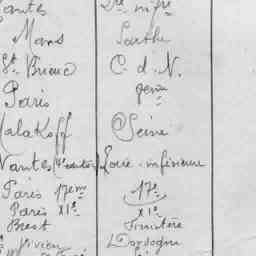 Nantes Dre infre
Mans Sarthe
St. Brieuc C. d. N.
Paris 9eme
Malakoff Seine
Nantes (4e canton) Loire-inférieure
Paris 17eme 17e
Paris XIe XIe
Brest Finistère
Vivien Dordogne